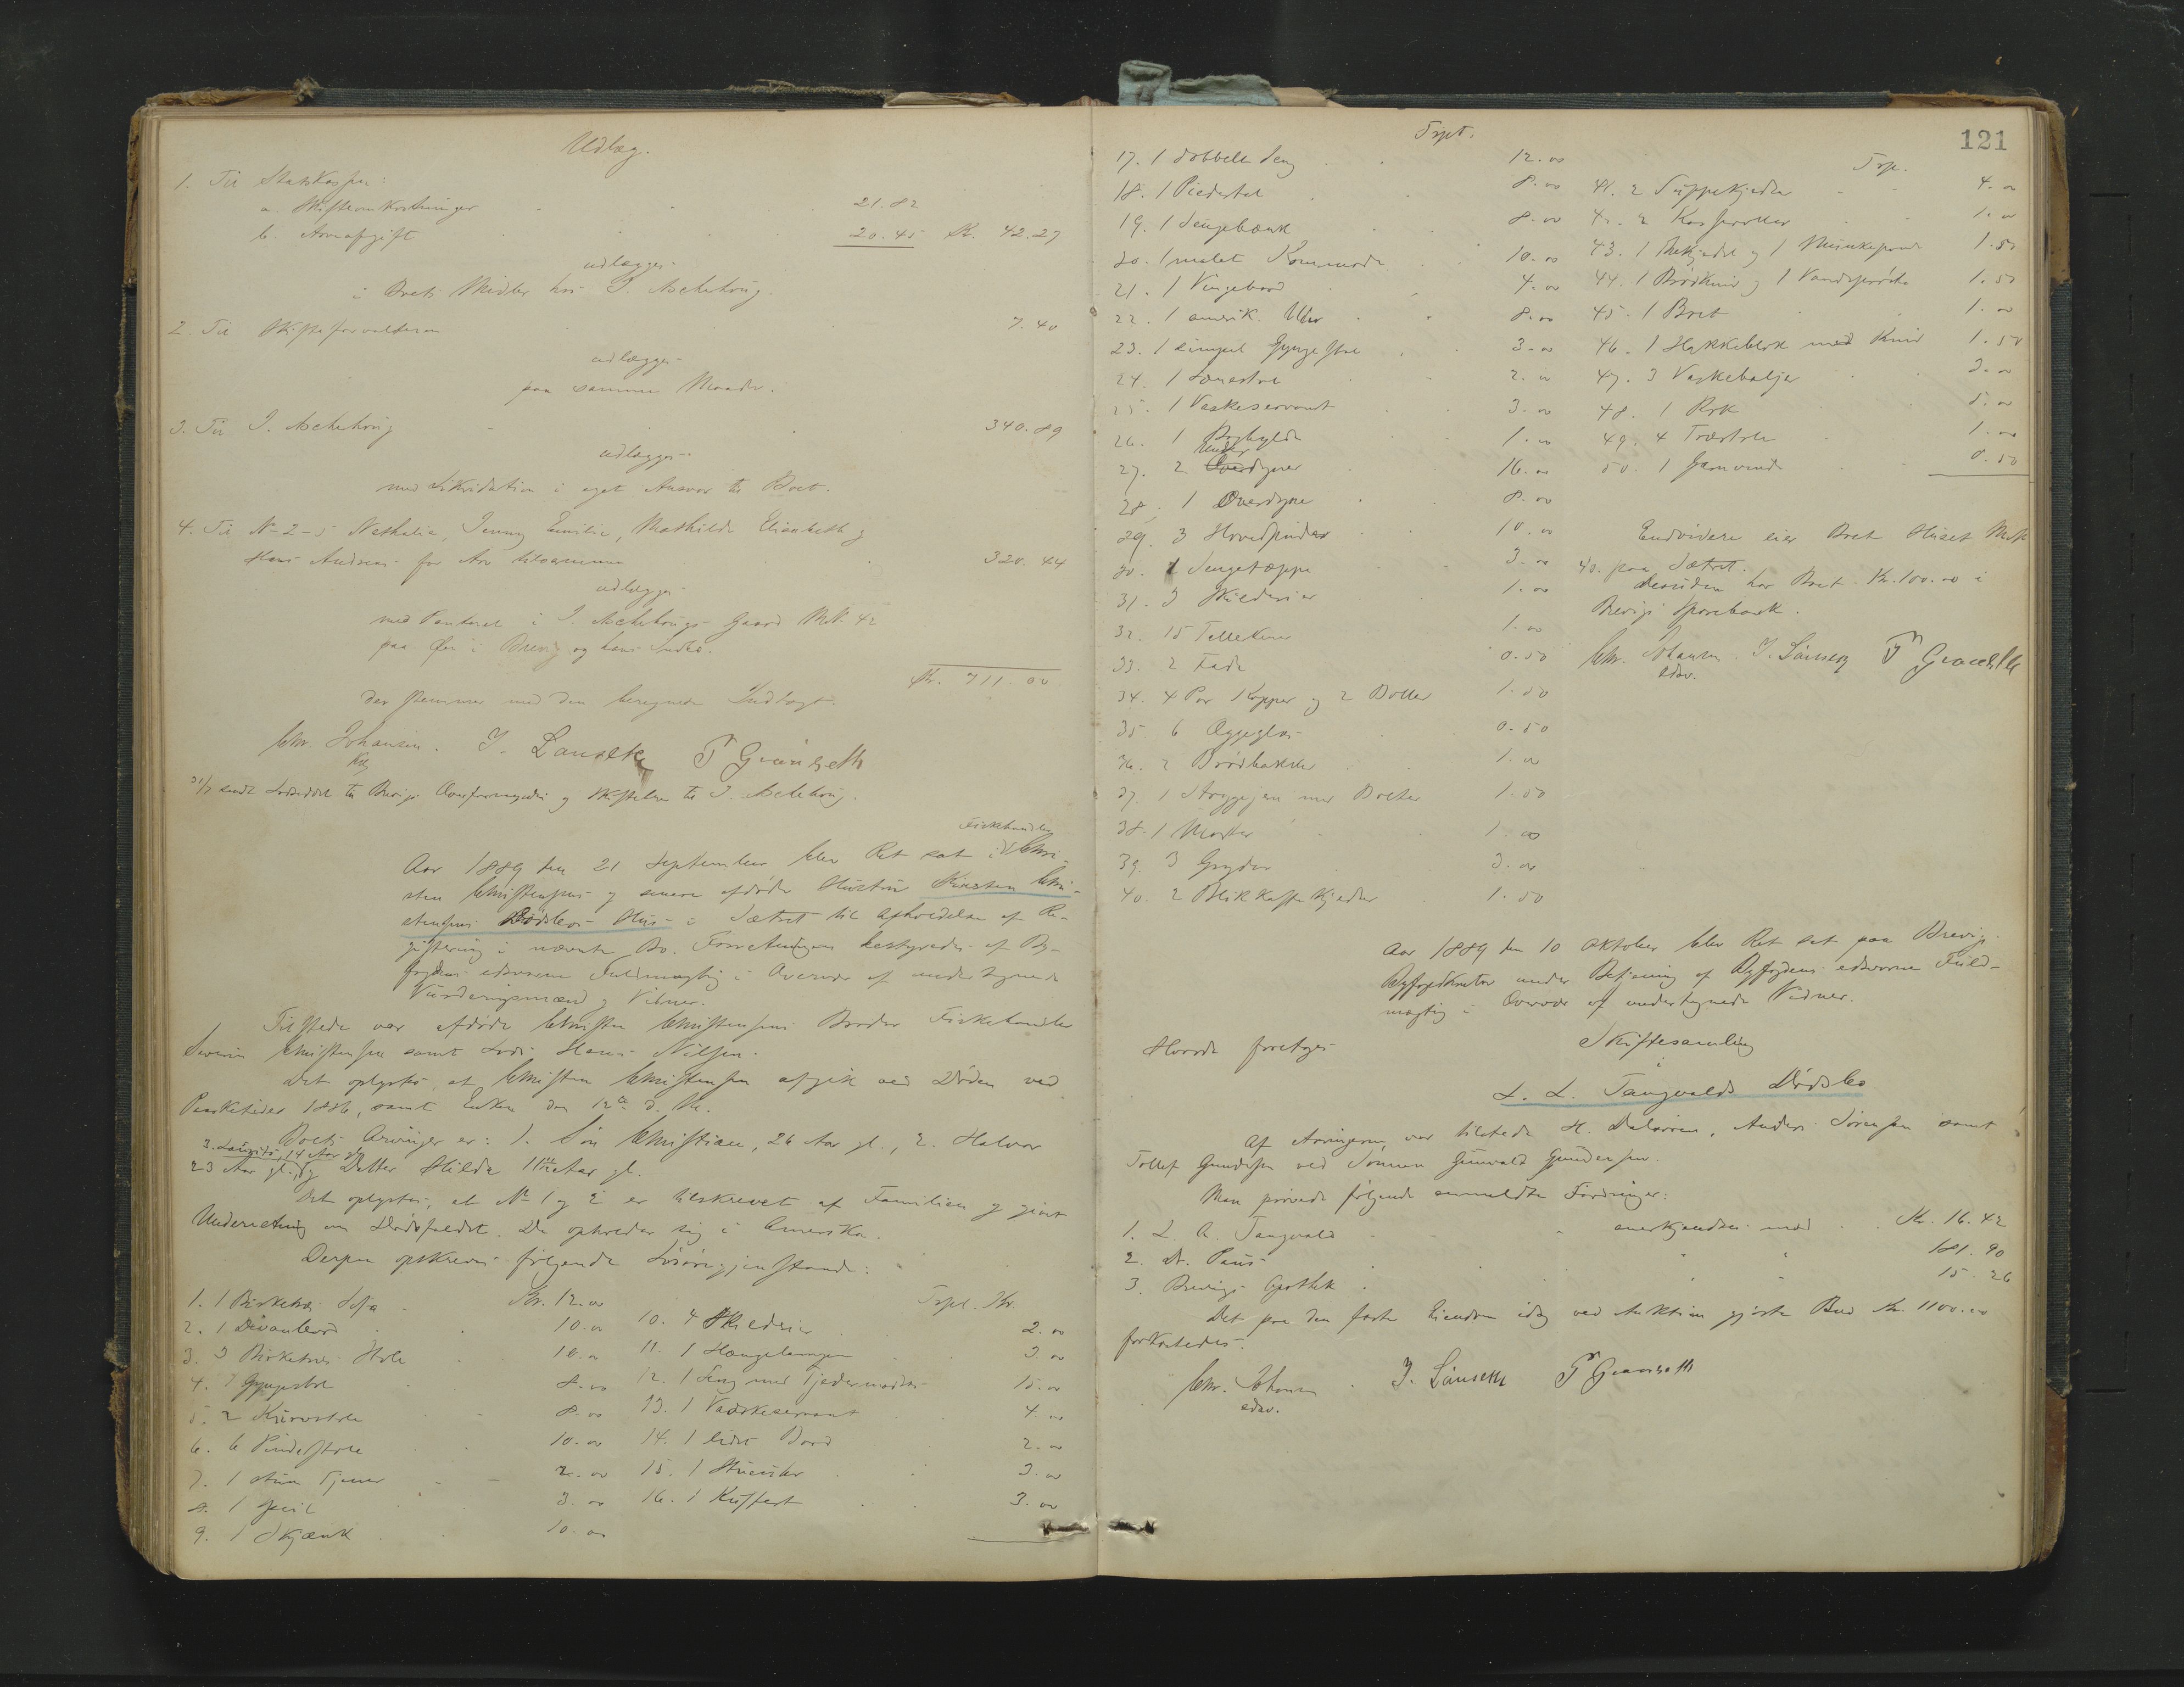 Udlæg.
1. Til Statskassen:
a. Skifteomkostninger 21.82
b. Arveafgift 20.45 Kr. 42.27
udlægges
i Boets Midler hos J. Aschehoug.
2. Til Skifteforvalteren 7.40
udlægges
paa samme Maade.
3. Til J. Aschehoug 340.89
udlægges
med Likvidation i eget Ansvar til Boet.
4. Til No 2-5 Nathalie, Jenny Emilie, Mathilde Elisabeth og
Hans Andreas for Arv tilsammen 320.44
udlægges
med Panteret i J. Aschehougs Gaard M.N. 42
paa Øen i Brevig og hans Indbo.
Kr. 711.00
der stemmer med den beregnede Indtægt.
Chr. Johansen. J. Lauseth P Granseth
31/7 sendt Lodseddel til Brevigs Overformynderi og Skiftebrev til J. Aschehoug.
Fiskehandler
Aar 1889 den 21 September blev Ret sat i Chri-
sten Christensens og senere afdøde Hustru Kirsten Chri-
stensens Dødsbos Hus i Sætret til Afholdelse af Re-
gistrering i nævnte Bo. Forretningen bestyredes af By-
fogdens edsvorne Fuldmægtig i Overvær af undertegnede
Vurderingsmænd og Vidner.
Tilstede var afdøde Christen Christensens Broder Fiskehandler
Severin Christensen samt Lods Hans Nilsen.
Det oplystes, at Christen Christensen afgik ved Døden ved
Paasketider 1886, samt Enken den 12te d. M.
Boets Arvinger er: 1. Søn Christian, 26 Aar gl., 2. Halvor
3. Lauritz, 14 Aar gl.
23 Aar gl., og Datter Hilda 11 Aar gl.
Det oplystes, at No 1 og 2 er tilskrevet af Familien og givet
Underretning om Dødsfaldet. De opholder sig i Amerika.
Derpaa opskreves følgende Løsøregjenstande:
1. 1 Birketræs Sofa Kr. 12.00
2. 1 Divanbord 10.00
3. 3 Birketræs Stole 10.00
4. 1 Gyngestol 8.00
5. 2 Kurvstole 8.00
6. 6 Pindestole 10.00
7. 1 stum Tjener 2.00
8. 1 Speil 3.00
9. 1 Skjænk 10.00
Trpt. Kr.
10. 4 Skilderier 2.00
11. 1 Hængelampe 3.00
12. 1 Seng med Fjedermadras 15.00
13. 1 Vaskeservant 4.00
14. 1 lidet Bord 2.00
15. 1 Stueuhr 3.00
16. 1 Kuffert 3.00
121
Trpt.
17. 1 dobbelt Seng 12.00
18. 1 Piedestal 8.00
19. 1 Sengebænk 8.00
20. 1 malet Kommode 10.00
21. 1 Vingebord 4.00
22. 1 amerik. Uhr 8.00
23. 1 simpel Gyngestol 3.00
24. 1 Lænestol 2.00
25. 1 Vaskeservant 3.00
26. 1 Boghylde 1.00
Under
27. 2 Overdyner 16.00
28. 1 Overdyne 8.00
29. 3 Hovedpuder 10.00
30. 1 Sengetæppe 3.00
31. 3 Skilderier 1.00
32. 15 Tellekener 1.00
33. 2 Fade 0.50
34. 4 Par Kopper og 2 Boller 1.50
35. 6 Æggeglas 0.50
36. 2 Brødbakker 1.00
37. 1 Strygejern med Bolter 1.50
38. 1 Morter 1.00
39. 3 Gryder 3.00
40. 2 Blikkaffekjedler 1.50
Trp.
41. 2 Suppekjedler 4.00
42. 2 Kasseroller 1.00
43. 1 Thekjedel og 1 Munkepande 1.50
44. 1 Brødkniv og 1 Vandspøite 1.50
45. 1 Bret 1.00
46. 1 Hakkeblok med Kniv 1.50
47. 3 Vaskebaljer 3.00
48. 1 Rok 5.00
49. 4 Træstole 1.00
50. 1 Garnvinde 0.50
Endvidere eier Boet Huset M.N.
40. paa Sætret.
desuden har Boet Kr. 100.00 i
Brevigs Sparebank.
Chr. Johansen J. Lauseth P Granseth
edsv.
Aar 1889 den 10 Oktober blev Ret sat paa Brevigs
Byfogedkontor under Betjening af Byfogdens edsvorne Fuld-
mægtig i Overvær af undertegnede Vidner.
Hvorda foretoges
Skiftesamling
i
L. L. Tangvalds Dødsbo
Af Arvingerne var tilstede H. Dalsveen, Anders Sørensen samt
Tollef Gundersen ved Sønnen Gunvald Gundersen.
Man prøvede følgende anmeldte Fordringer:
1. L. A. Tangvald anerkjendtes med Kr. 16.42
2. Dr. Paus " " 181.90
3. Brevigs Apothek " " 15.26
Det paa den faste Eiendom idag ved Auktion gjorte Bud Kr. 1100.00
forkastedes.
Chr. Johansen J. Lauseth P Granseth
edsv.